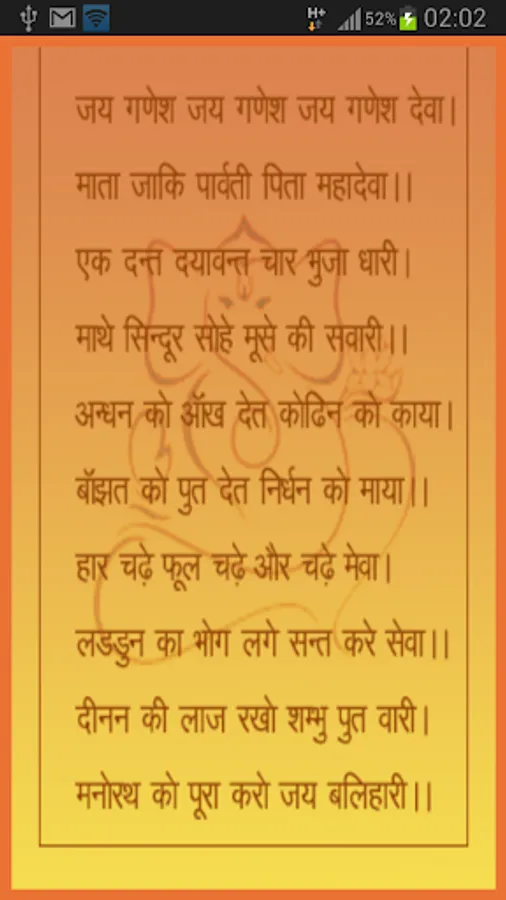 H+ 52% 02:02
जय गणेश जय गणेश जय गणेश देवा।
माता जाकि पार्वती पिता महादेवा।।
एक दन्त दयावन्त चार भुजा धारी।
माथे सिन्दूर सोहे मूसे की सवारी।।
अन्धन को ऑख देत कोढिन को काया।
बॉझत को पुत देत निर्धन को माया।।
हार चढ़े फूल चढ़े और चढ़े मेवा।
लडडुन का भोग लगे सन्त करे सेवा।।
दीनन की लाज रखो शम्भु पुत वारी।
मनोरथ को पूरा करो जय बलिहारी।।